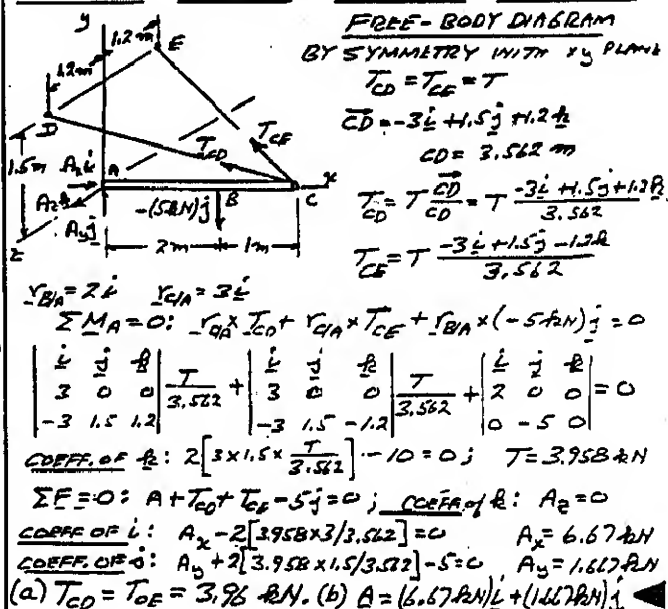 FREE-BODY DIAGRAM
BY SYMMETRY WITH xy PLANE
T_CD = T_CE = T
CD = -3i +1.5j +1.2k
CD = 3.562 m
T_CD = T CD/CD = T (-3i +1.5j +1.2k)/3.562
T_CE = T (-3i +1.5j -1.2k)/3.562
y
1.2m
1.2m
E
D
T_CE
T_CD
1.5m
A_x i
A
x
A_z k
-(5kN)j
B
C
A_y j
z
2m
1m
r_B/A = 2i r_C/A = 3i
ΣM_A = 0: r_C/A × T_CD + r_C/A × T_CE + r_B/A × (-5 kN)j = 0
|i j k| |i j k| |i j k|
|3 0 0| T/3.562 + |3 0 0| T/3.562 + |2 0 0| = 0
|-3 1.5 1.2| |-3 1.5 -1.2| |0 -5 0|
COEFF. OF k: 2[3×1.5× T/3.562] -10 = 0; T = 3.958 kN
ΣF = 0: A + T_CD + T_CE - 5j = 0; COEFF. of k: A_z = 0
COEFF OF i: A_x - 2[3.958×3/3.562] = 0 A_x = 6.67 kN
COEFF. OF j: A_y + 2[3.958×1.5/3.562] - 5 = 0 A_y = 1.667 kN
(a) T_CD = T_CE = 3.96 kN. (b) A = (6.67 kN)i + (1.667 kN)j